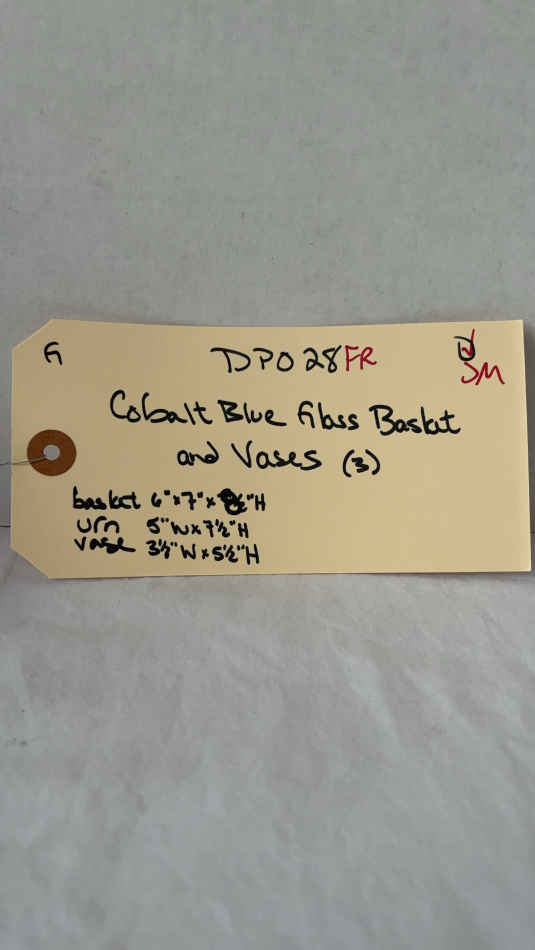 G DPO28FR D
JM
Cobalt Blue Glass Basket
and Vases (3)
basket 6" x 7" x 8½"H
urn 5"W x 7½"H
vase 3½"W x 5½"H